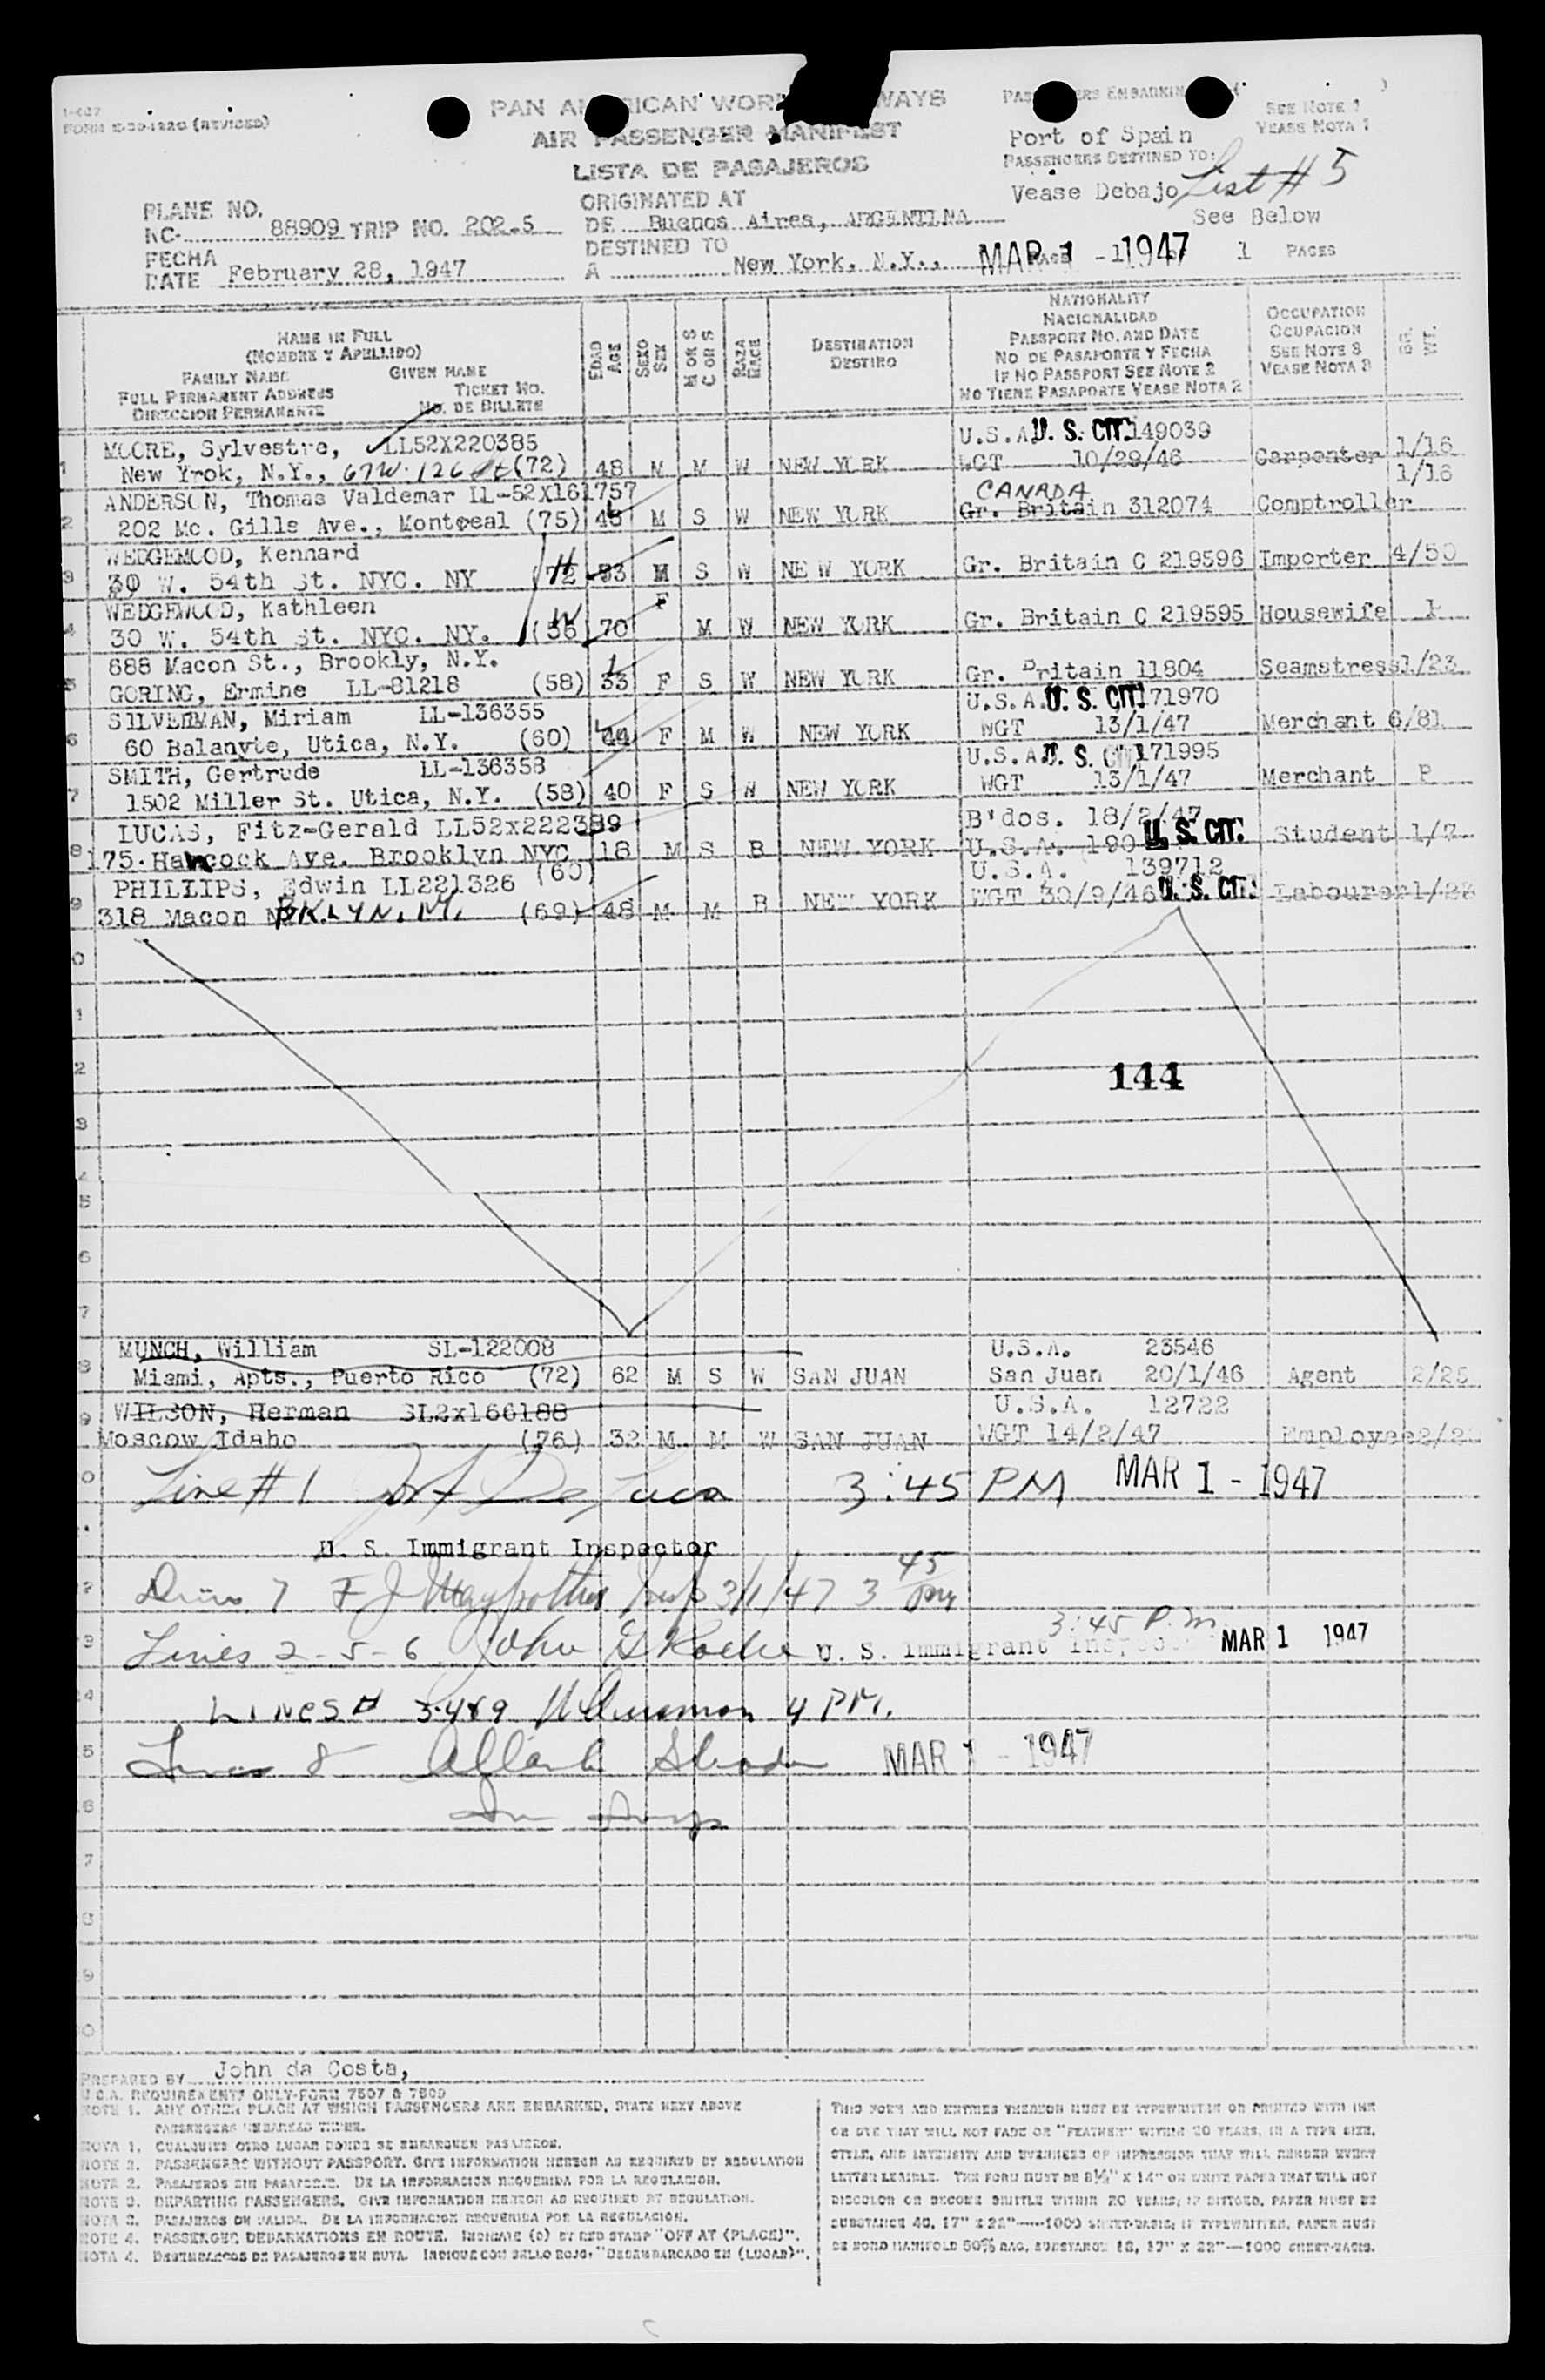 I-487
FORM (REVISED)
PAN AMERICAN WORLD AIRWAYS
AIR PASSENGER MANIFEST
LISTA DE PASAJEROS
PASSENGERS EMBARKING
SEE NOTE 1
VEASE NOTA 1
Port of Spain
PASSENGERS DESTINED TO:
Vease Debajo List # 5
See Below
PLANE NO.
NC- 88909 TRIP NO. 202-5
FECHA
DATE February 28, 1947
ORIGINATED AT
DE Buenos Aires, ARGENTINA
DESTINED TO
A New York, N.Y., MAR 1 - 1947 1 PAGES
NAME IN FULL
(NOMBRE Y APELLIDO)
FAMILY NAME GIVEN NAME
FULL PERMANENT ADDRESS TICKET NO.
DIRECCION PERMANENTE NO. DE BILLETE
EDAD AGE
SEXO SEX
M OR S C OR S
RAZA RACE
DESTINATION
DESTINO
NATIONALITY
NACIONALIDAD
PASSPORT NO. AND DATE
NO DE PASAPORTE Y FECHA
IF NO PASSPORT SEE NOTE 2
NO TIENE PASAPORTE VEASE NOTA 2
OCCUPATION
OCUPACION
SEE NOTE 3
VEASE NOTA 3
WT.
MOORE, Sylvestre, LL52X220385 U.S.A. U. S. CIT. 149039
1 New Yrok, N.Y., 67 W. 126 St (72) 48 M M W NEW YORK WGT 10/29/46 Carpenter 1/16
ANDERSON, Thomas Valdemar LL-52X161757 CANADA 1/16
2 202 Mc. Gills Ave., Montreal (75) 45 M S W NEW YORK Gr. Britain 312074 Comptroller
WEDGEWOOD, Kennard
3 30 W. 54th St. NYC. NY H (72 53 M S W NEW YORK Gr. Britain C 219596 Importer 4/50
WEDGEWOOD, Kathleen
4 30 W. 54th St. NYC. NY. W (56 70 F M W NEW YORK Gr. Britain C 219595 Housewife P
688 Macon St., Brookly, N.Y.
5 GORING, Ermine LL-81218 (58) 33 F S W NEW YORK Gr. Britain 11804 Seamstress 1/23
SILVERMAN, Miriam LL-136355 U.S.A. U. S. CIT. 171970
6 60 Balanyte, Utica, N.Y. (60) 44 F M W NEW YORK WGT 13/1/47 Merchant 6/81
SMITH, Gertrude LL-136358 U.S.A. U. S. CIT 171995
7 1502 Miller St. Utica, N.Y. (58) 40 F S W NEW YORK WGT 13/1/47 Merchant P
LUCAS, Fitz-Gerald LL52x222389 B'dos. 18/2/47
8 175 Hancock Ave. Brooklyn NYC (60) 18 M S B NEW YORK U.S.A. 190 U. S. CIT. Student 1/7
PHILLIPS, Edwin LL221326 U.S.A. 139712
9 318 Macon BKLYN. (69) 48 M M B NEW YORK WGT 30/9/46 U. S. CIT. Labourer 1/23
0
1
2 144
3
4
5
6
7
MUNCH, William SL-122008 U.S.A. 23546
8 Miami, Apts., Puerto Rico (72) 62 M S W SAN JUAN San Juan 20/1/46 Agent 2/25
9 WILSON, Herman SL2x166188 U.S.A. 12722
Moscow Idaho (76) 32 M M W SAN JUAN WGT 14/2/47 Employee
0 Line # 1 3:45 PM MAR 1 - 1947
U. S. Immigrant Inspector
2 7 F J Insp 3/1/47 3 45 pm
3 Lines 2-5-6 John G Roche U. S. Immigrant Inspector 3:45 P.m. MAR 1 1947
4 LINES # 3-4&9 4 PM.
5 Lines 8 MAR 1 - 1947
6 Insp
7
8
9
0
PREPARED BY John da Costa,
U.S.A. REQUIREMENTS ONLY-FORM 7507 & 7509
NOTE 1. ANY OTHER PLACE AT WHICH PASSENGERS ARE EMBARKED, STATE NEXT ABOVE
PASSENGERS EMBARKED THERE.
NOTA 1. CUALQUIER OTRO LUGAR DONDE SE EMBARQUEN PASAJEROS.
NOTE 2. PASSENGERS WITHOUT PASSPORT. GIVE INFORMATION HEREON AS REQUIRED BY REGULATION
NOTA 2. PASAJEROS SIN PASAPORTE. DE LA INFORMACION REQUERIDA POR LA REGULACION.
NOTE 3. DEPARTING PASSENGERS. GIVE INFORMATION HEREON AS REQUIRED BY REGULATION.
NOTA 3. PASAJEROS DE SALIDA. DE LA INFORMACION REQUERIDA POR LA REGULACION.
NOTE 4. PASSENGER DEBARKATIONS EN ROUTE. INDICATE (O) BY RED STAMP "OFF AT (PLACE)".
NOTA 4. DESEMBARCOS DE PASAJEROS EN RUTA. INDIQUE CON SELLO ROJO, "DESEMBARCADO EN (LUGAR)".
THIS FORM AND ENTRIES THEREON MUST BE TYPEWRITTEN OR PRINTED WITH INK
OR DYE THAT WILL NOT FADE OR "FEATHER" WITHIN 20 YEARS, IN A TYPE SIZE,
STYLE, AND INTENSITY AND EVENNESS OF IMPRESSION THAT WILL RENDER EVERY
LETTER LEGIBLE. THE FORM MUST BE 8½" X 14" ON WHITE PAPER THAT WILL NOT
DISCOLOR OR BECOME BRITTLE WITHIN 20 YEARS; IF DITTOED, PAPER MUST BE
SUBSTANCE 40, 17" X 22"—1000 SHEET-BASIS; IF TYPEWRITTEN, PAPER MUST
BE BOND MANIFOLD 50% RAG, SUBSTANCE 18, 17" X 22"—1000 SHEET-BASIS.